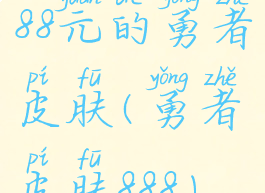 yuán de yǒng zhě
88元的勇者
pí fū yǒng zhě
皮肤(勇者
pí fū
皮肤888)